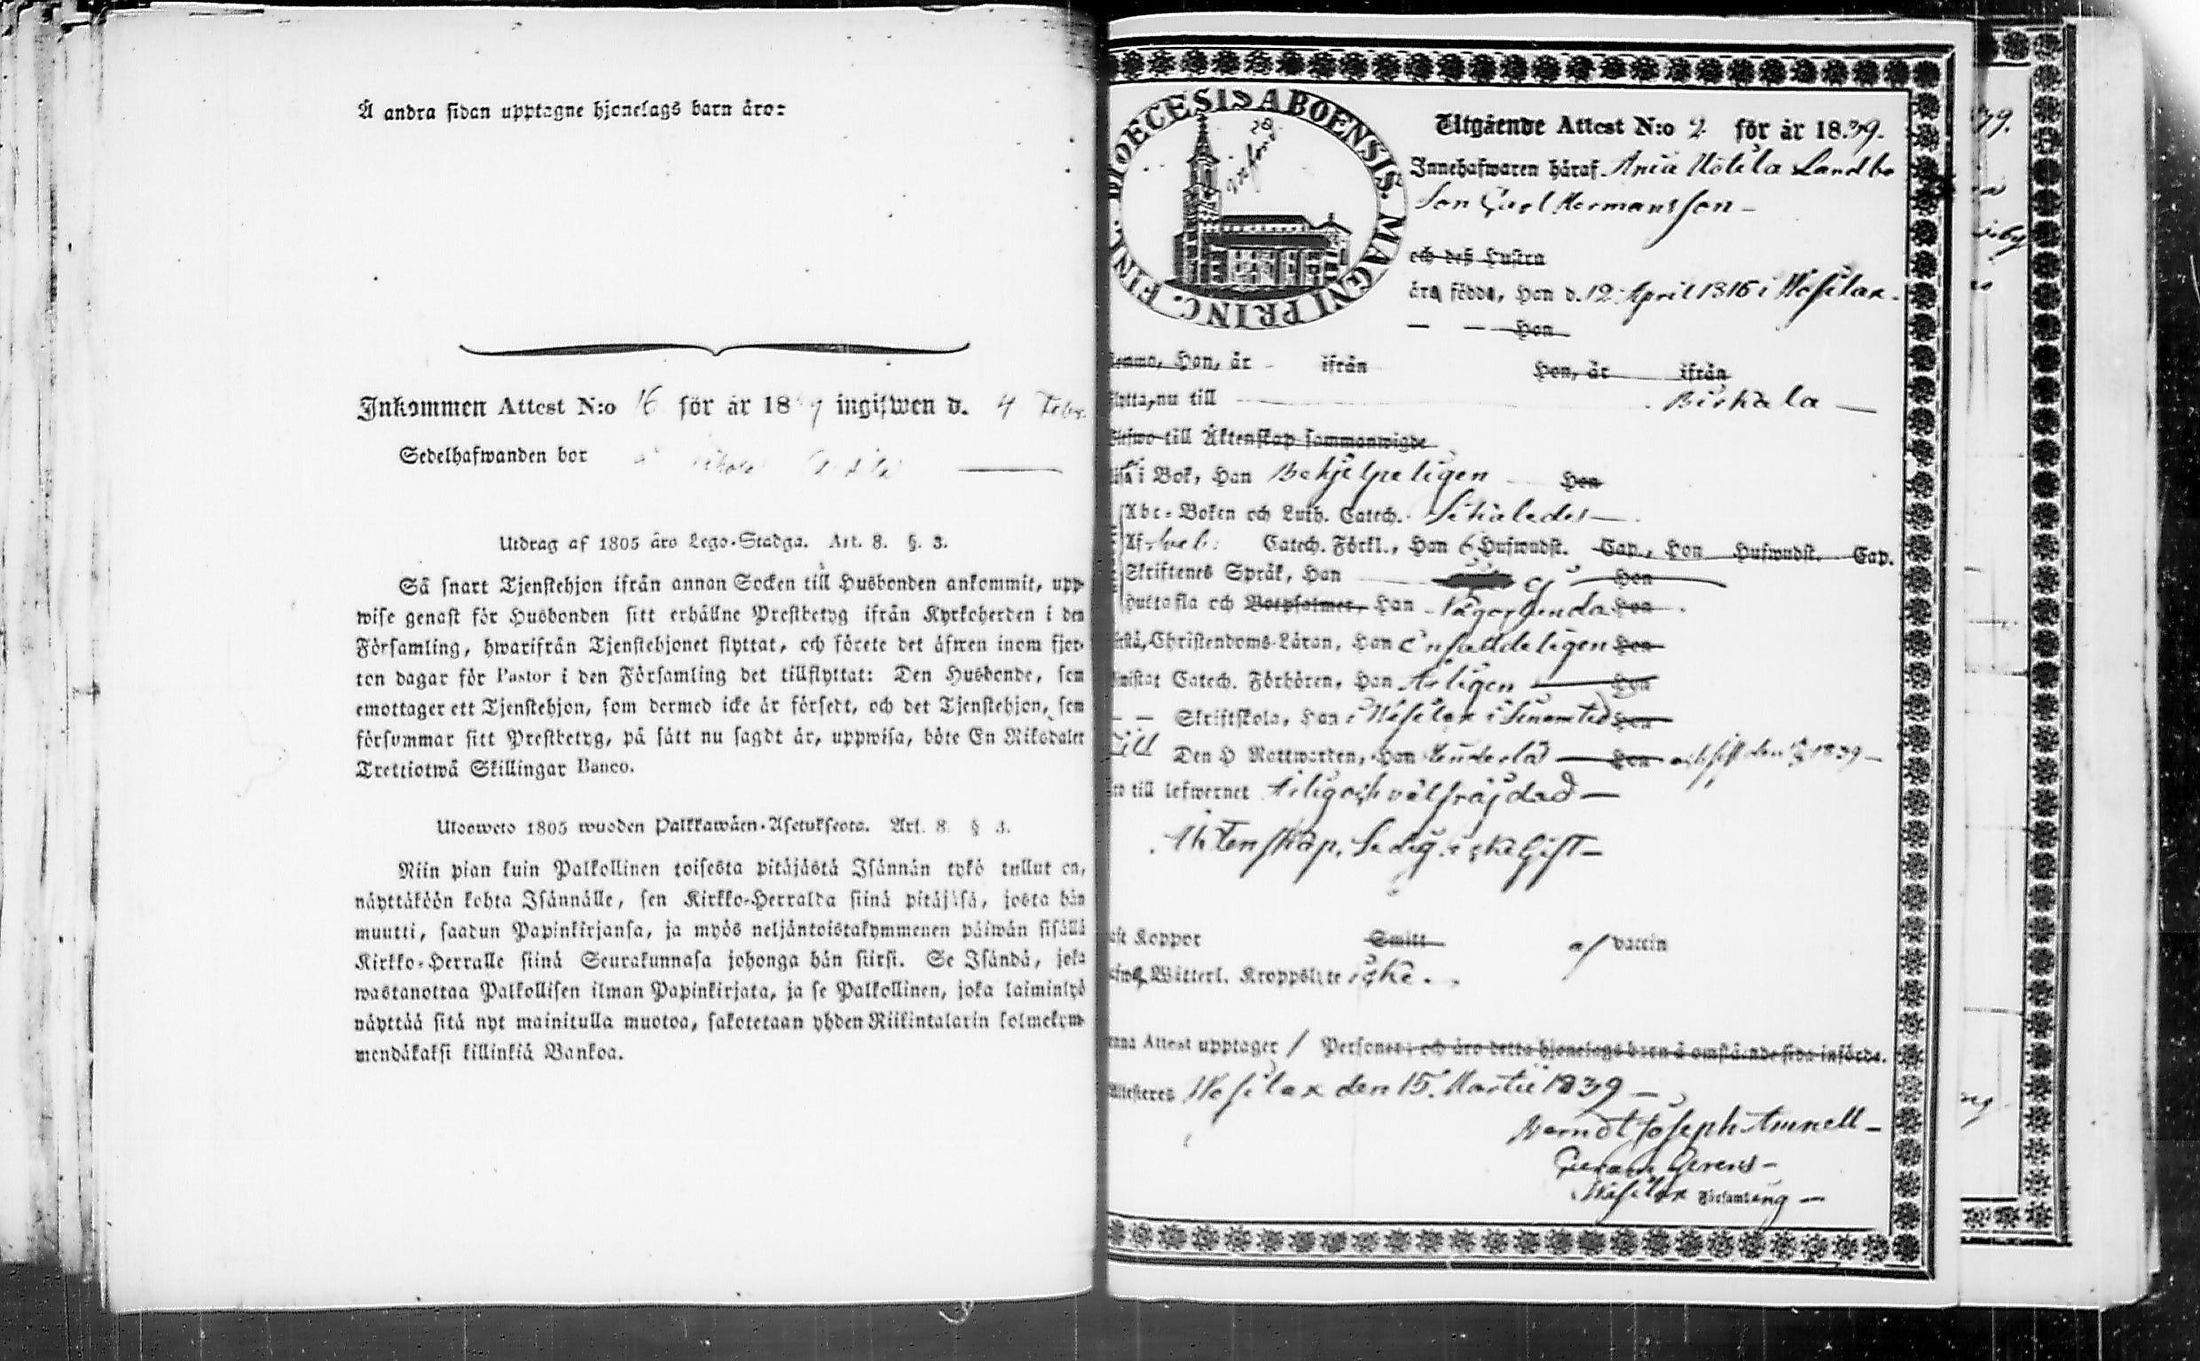 Å andra sidan upptagne hjonelags barn äro:
Inkommen Attest N:o 16 för år 18 9 ingifwen d. 4 Febr.
Sedelhafwanden bor
Utdrag af 1805 års Lego-Stadga. Art. 8. §. 3.
Så snart Tjenstehjon ifrån annan Socken till Husbonden ankommit, upp-
wise genast för Husbonden sitt erhållne Prestbetyg ifrån Kyrkoherden i den
Församling, hwarifrån Tjenstehjonet flyttat, och förete det äfwen inom fjor-
ton dagar för Pastor i den Församling det tillflyttat: Den Husbonde, som
emottager ett Tjenstehjon, som dermed icke är försedt, och det Tjenstehjon, som
försummar sitt Prestbetyg, på sätt nu sagdt är, uppwisa, böte En Riksdaler
Trettiotwå Skillingar Banco.
Ulosweto 1805 wuoden Palkkawäen-Asetuksesta. Art. 8 § 3.
Niin pian kuin Palkollinen toisesta pitäjästä Isännän tykö tullut on,
näyttäköön kohta Isännälle, sen Kirkko-Herralda siinä pitäjäsä, josta hän
muutti, saadun Papinkirjansa, ja myös neljäntoistakymmenen päiwän sisällä
Kirkko-Herralle siinä Seurakunnasa johonga hän siirsi. Se Isändä, joka
wastanottaa Palkollisen ilman Papinkirjata, ja se Palkollinen, joka laiminlyö
näyttää sitä nyt mainitulla muotoa, sakotetaan yhden Riikintalarin kolmekym-
mendäkaksi killinkiä Bankoa.
DIOECESIS ABOENSIS. MAGNI PRINC. FINL.
införd
Utgående Attest N:o 2 för år 1839.
Innehafwaren häraf Ania Uotila Landbo
Son Carl Hermansson
och deß Hustru
äro födde, Han d. 12 April 1816 i Wesilax.
— — Hon
komma, Han, är ifrån Hon, är ifrån
flytta, nu till Birkala
Blefwo till Äktenskap sammanwigde
läsa i Bok, Han Behjelpeligen Hon
Abc-Boken och Luth. Catech. Likaledes
Af Catech. Förkl., Han 6 Hufwudst. Cap., Hon Hufwudst. Cap.
Skriftenes Språk, Han ej Hon
Hustafla och Botpsalmer, Han Någorlunda Hon
förstå, Christendoms-Läran, Han Enfaldeligen Hon
bewistat Catech. Förhören, Han Årligen Hon
— — Skriftskola, Han i Wesilax i sinom tid Hon
Till Den H Nattwarden, Han Hon och sist den 1839
äro till lefwernet Ärlig och välfräjdad
Äktenskap, Ledig icke Gift
haft Koppor Smitt af vaccin
hafwa Witterl. Kroppslyte icke.
Denna Attest upptager 1 Personer; och äro detta hjonelags barn å omstående sida införde.
Attesteres Wesilax den 15. Martii 1839
Berndt Joseph Amnell
Curam Gerens
Wesilax Församling